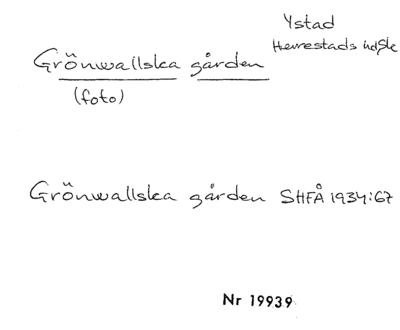 Ystad
Herrestads
Grönwallska gården
(foto)
Grönwallska gården SHFÅ 1934:67
Nr 19939